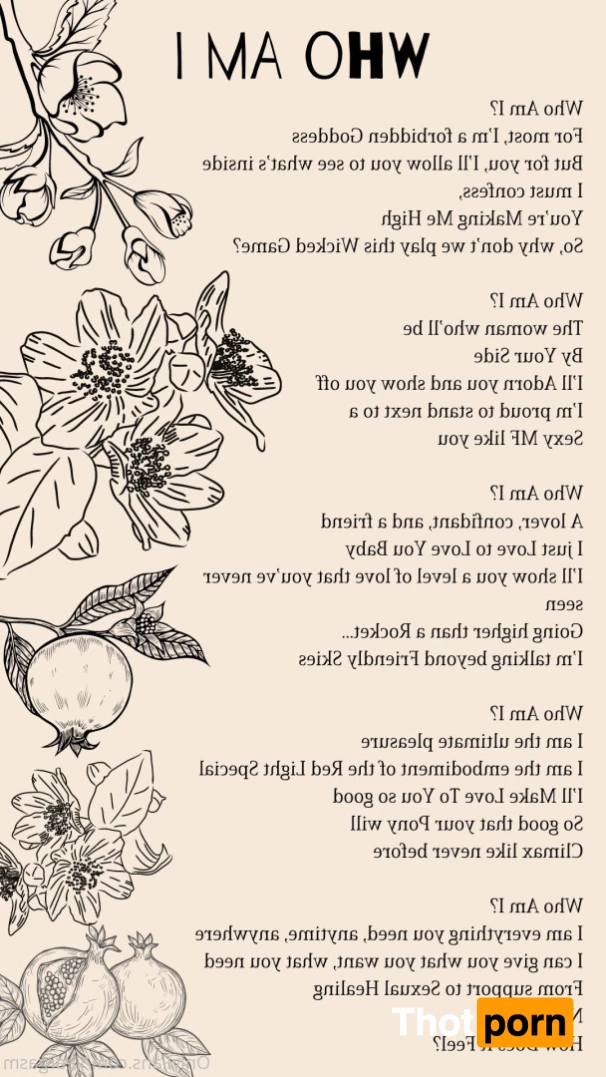 WHO AM I
Who Am I?
For most, I'm a forbidden Goddess
But for you, I'll allow you to see what's inside
I must confess,
You're Making Me High
So, why don't we play this Wicked Game?
Who Am I?
The woman who'll be
By Your Side
I'll Adorn you and show you off
I'm proud to stand next to a
Sexy MF like you
Who Am I?
A lover, confidant, and a friend
I just Love to Love You Baby
I'll show you a level of love that you've never
seen
Going higher than a Rocket...
I'm talking beyond Friendly Skies
Who Am I?
I am the ultimate pleasure
I am the embodiment of the Red Light Special
I'll Make Love To You so good
So good that your Pony will
Climax like never before
Who Am I?
I am everything you need, anytime, anywhere
I can give you what you want, what you need
From support to Sexual Healing
How Does It Feel?
Thotporn